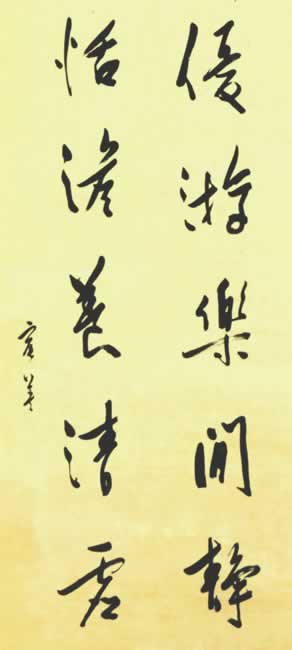 優游樂閒靜
恬澹養清虛